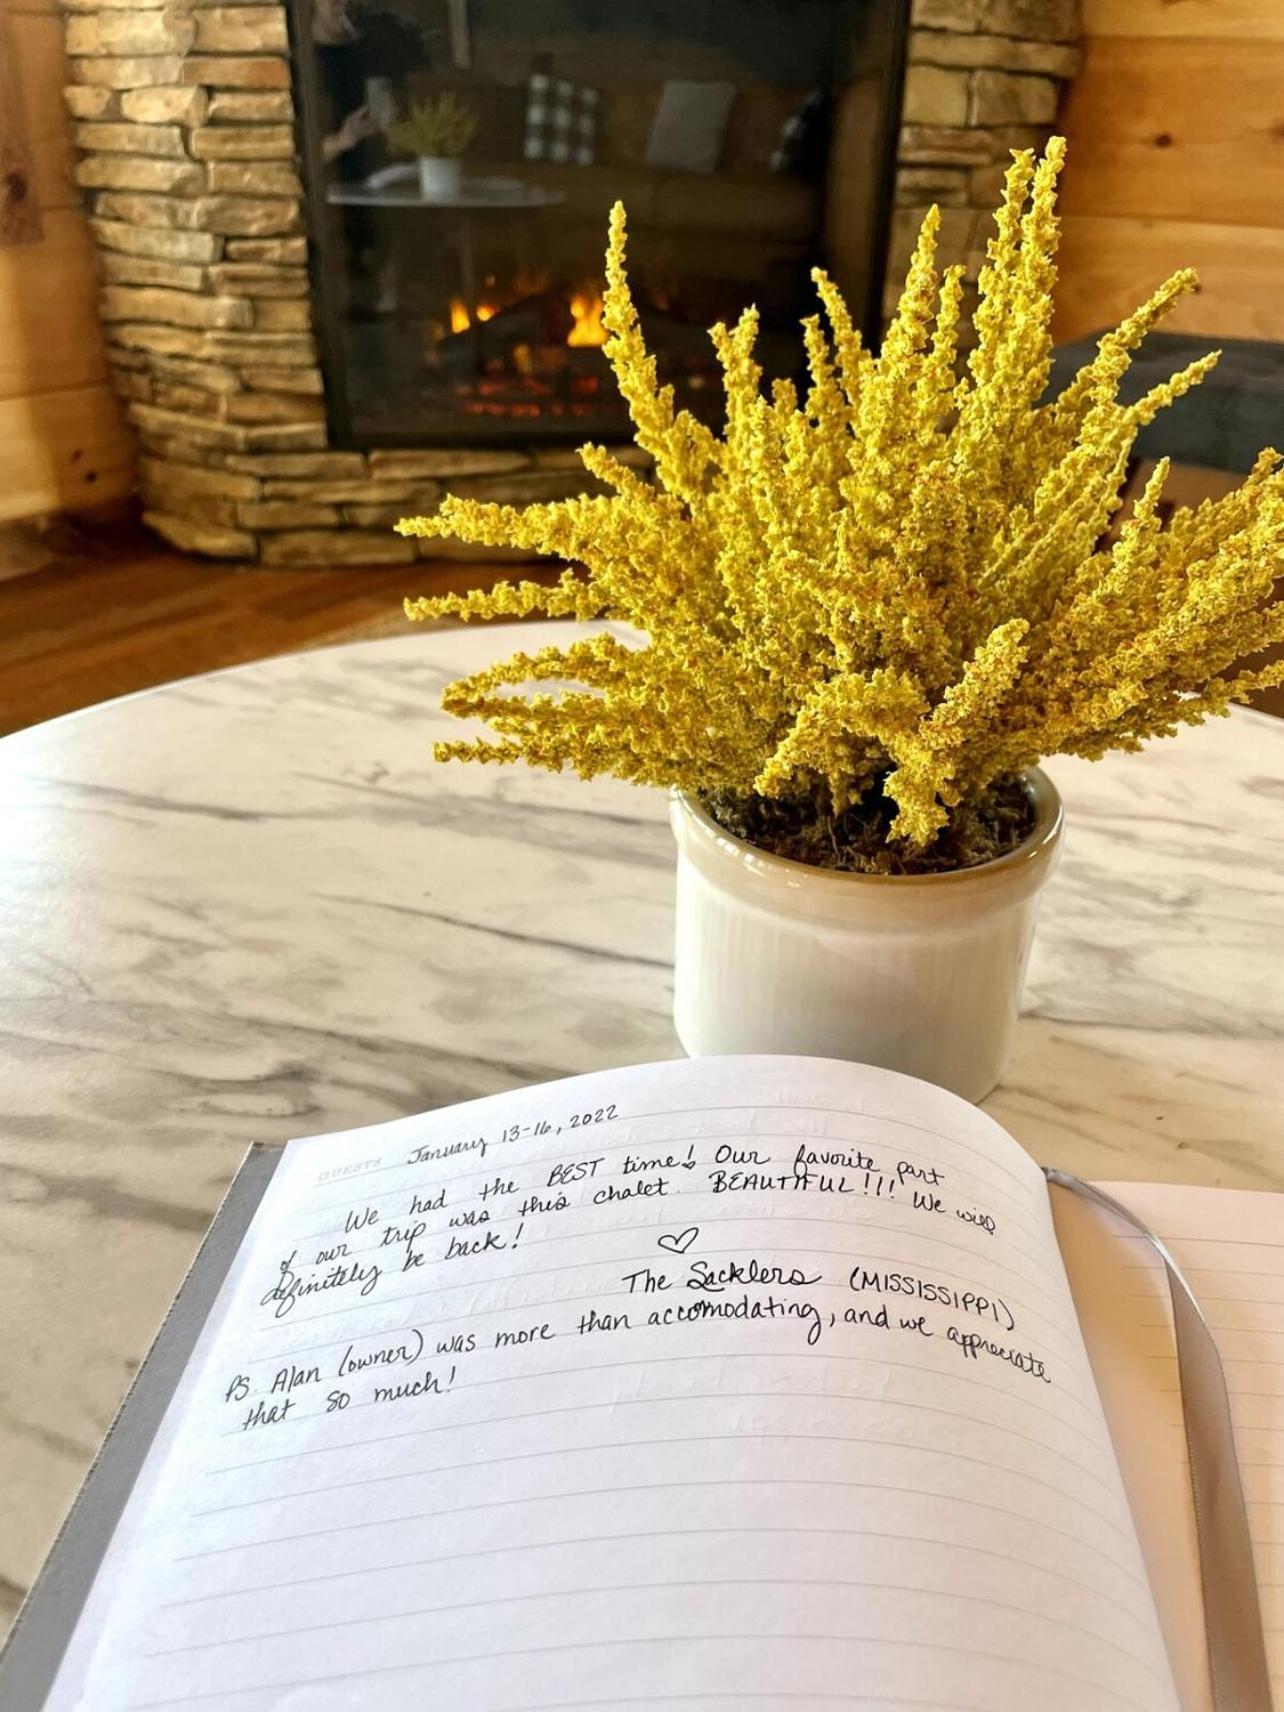 GUESTS January 13-16, 2022
We had the BEST time! Our favorite part
of our trip was this chalet. BEAUTIFUL!!! We will
definitely be back!
♡
The Sacklers (MISSISSIPPI)
PS. Alan (owner) was more than accomodating, and we appreciate
that so much!